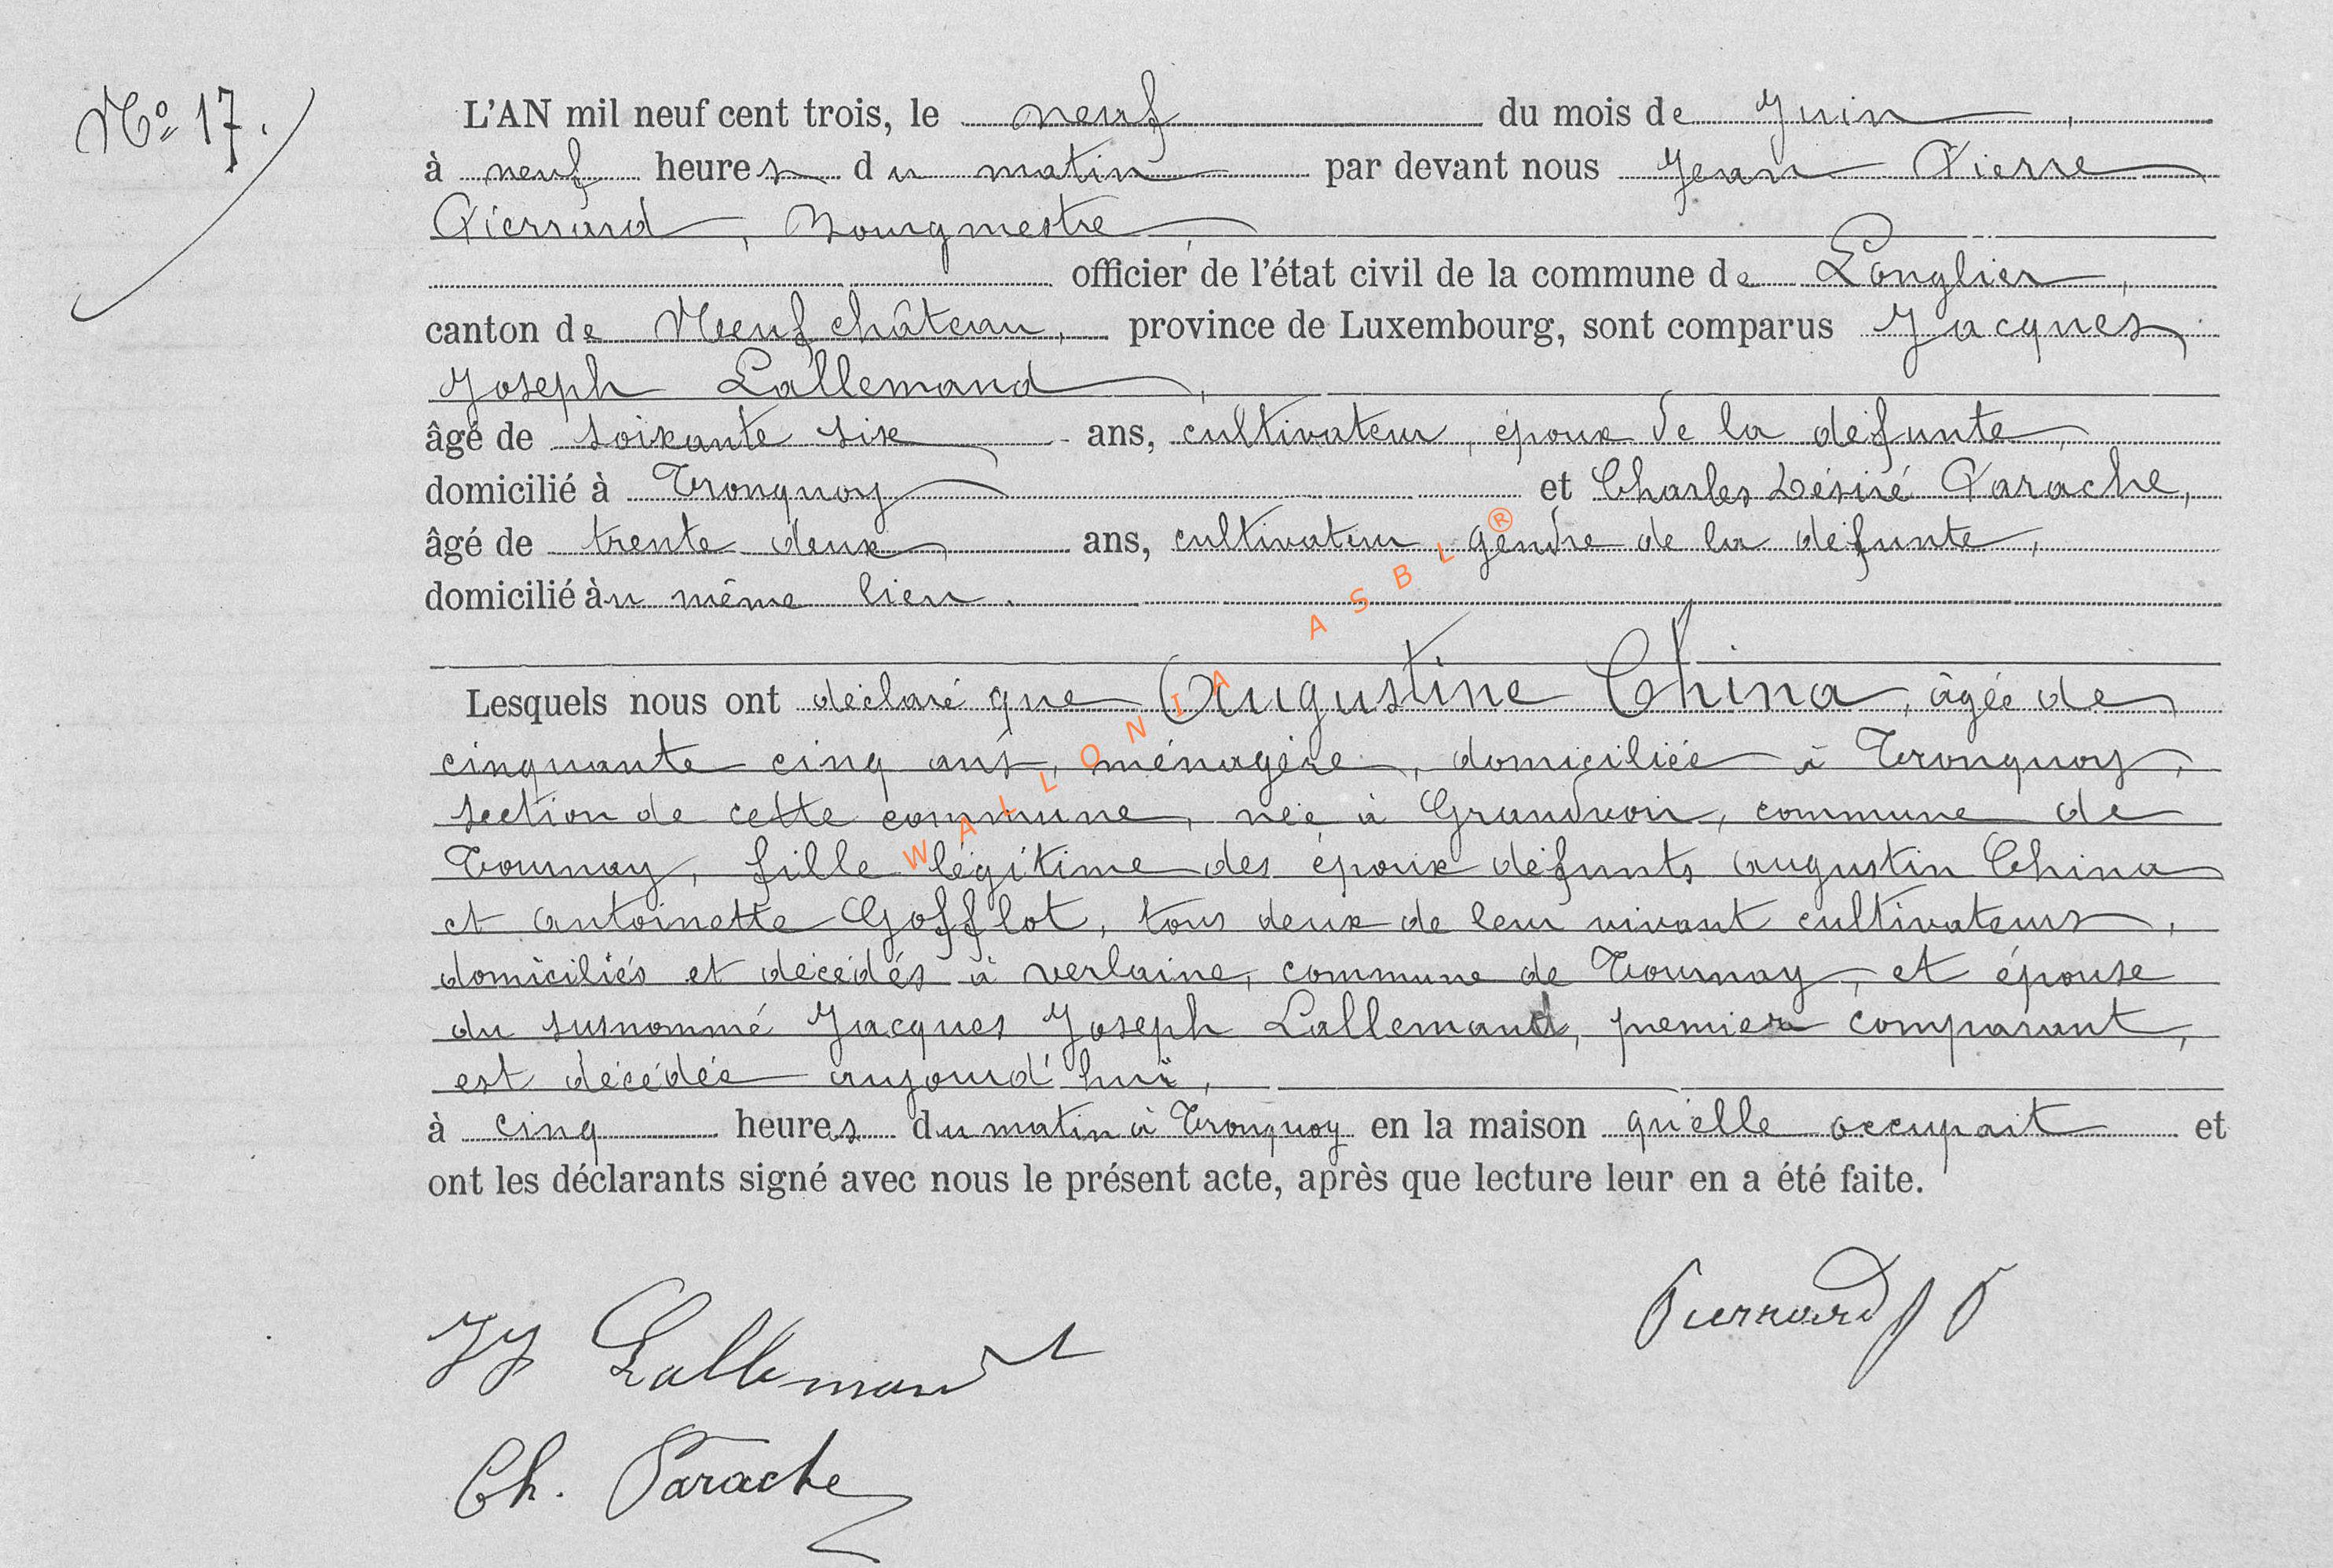 N° 17.
L'AN mil neuf cent trois, le neuf du mois de Juin,
à neuf heures du matin par devant nous Jean Pierre
Pierrard, Bourgmestre
officier de l'état civil de la commune de Longlier,
canton de Neufchâteau, province de Luxembourg, sont comparus Jacques
Joseph Lallemand,
âgé de soixante six ans, cultivateur, époux de la défunte,
domicilié à Tronquoy et Charles Désiré Parache,
âgé de trente deux ans, cultivateur gendre de la défunte,
domicilié au même lieu.
Lesquels nous ont déclaré que Augustine China, âgée de
cinquante cinq ans, ménagère, domiciliée à Tronquoy,
section de cette commune, née à Grandvoir, commune de
Tournay, fille légitime des époux défunts Augustin China
et Antoinette Gofflot, tous deux de leur vivant cultivateurs,
domiciliés et décédés à Verlaine, commune de Tournay, et épouse
du susnommé Jacques Joseph Lallemand, premier comparant,
est décédée aujourd'hui,
à cinq heures du matin à Tronquoy en la maison qu'elle occupait et
ont les déclarants signé avec nous le présent acte, après que lecture leur en a été faite.
JJ Lallemand
Pierrard J P
Ch. Parache
WALLONIA ASBL®